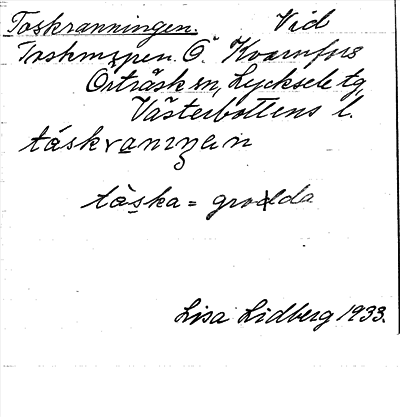 Toskranningen. Vid
Toskmyren. Ö. Kvarnfors
Örträsk sn, Lycksele tg,
Västerbottens l.
tåskranniŋen
tàska = grodda
Lisa Lidberg 1933.